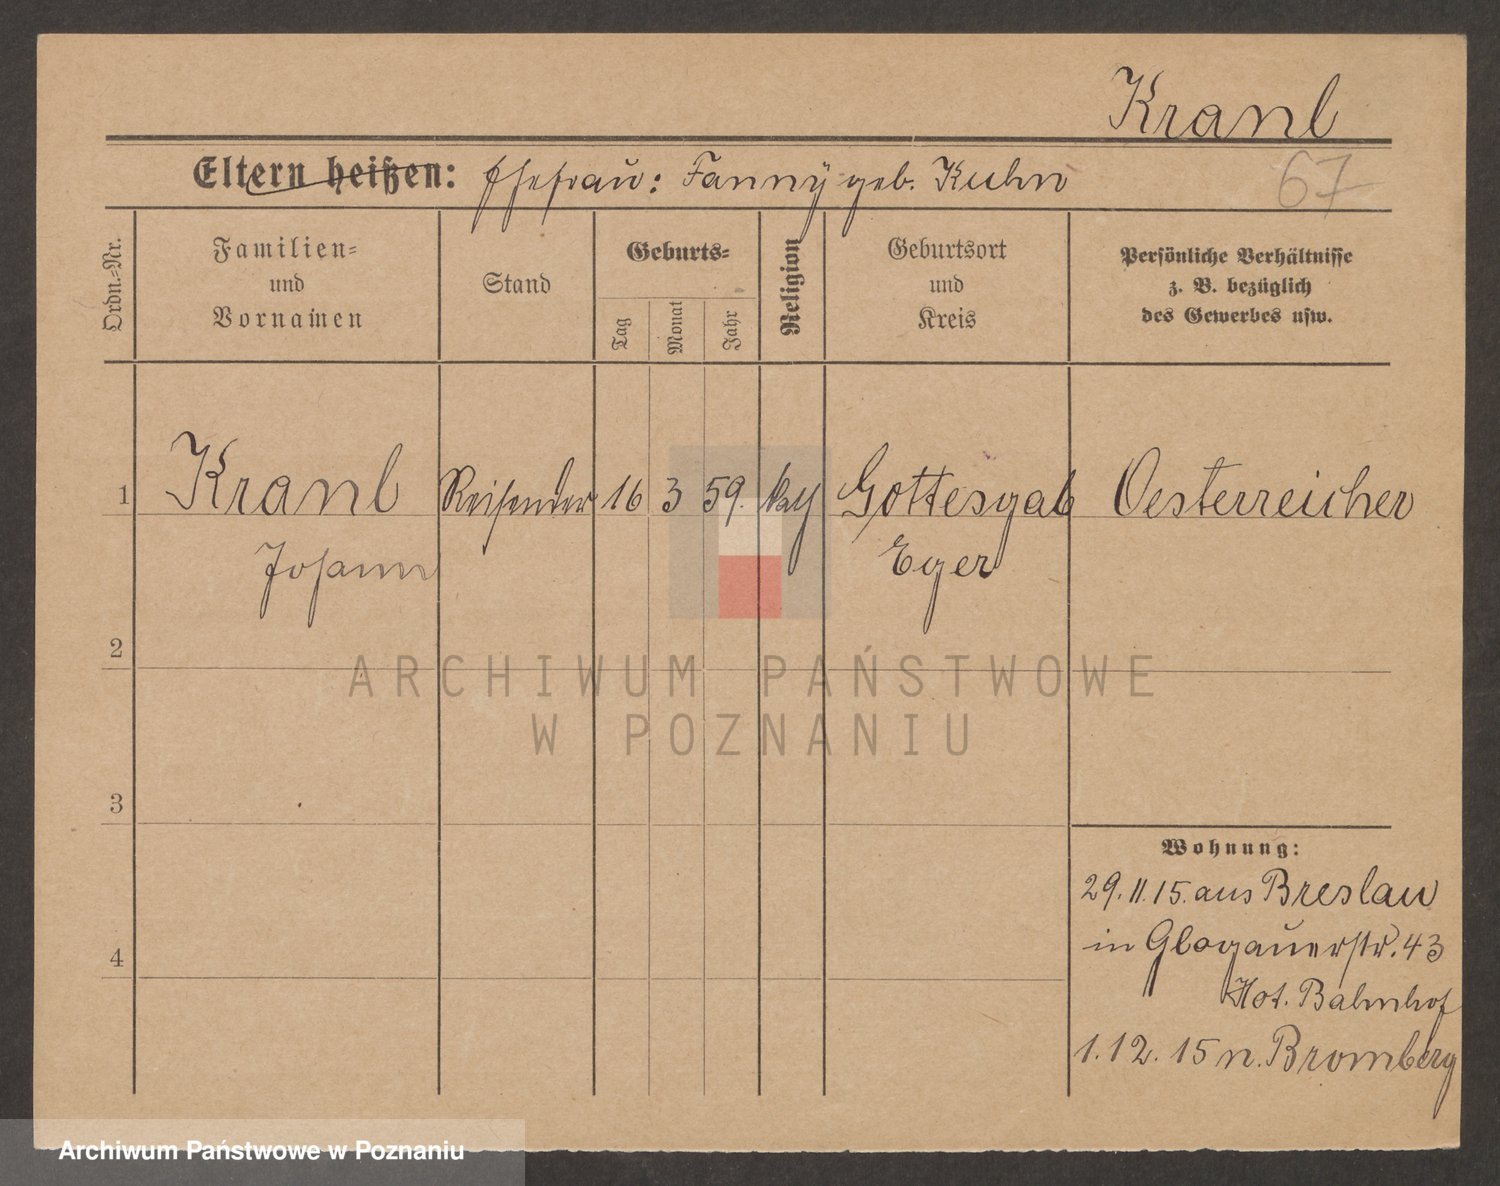 Kranl
Eltern heißen: Ehefrau: Fanny geb. Kuhn
67
Ordn.-Nr.
Familien-
und
Vornamen
Stand
Geburts-
Tag
Monat
Jahr
Religion
Geburtsort
und
Kreis
Persönliche Verhältnisse
z. B. bezüglich
des Gewerbes usw.
1 Kranl Reisender 16 3 59. Gottesgab Oesterreicher
Johann Eger
2
3
4
Wohnung:
29.11.15. aus Breslau
in Glogauerstr. 43
Hot. Bahnhof
1.12.15 n. Bromberg
ARCHIWUM PAŃSTWOWE
W POZNANIU
Archiwum Państwowe w Poznaniu